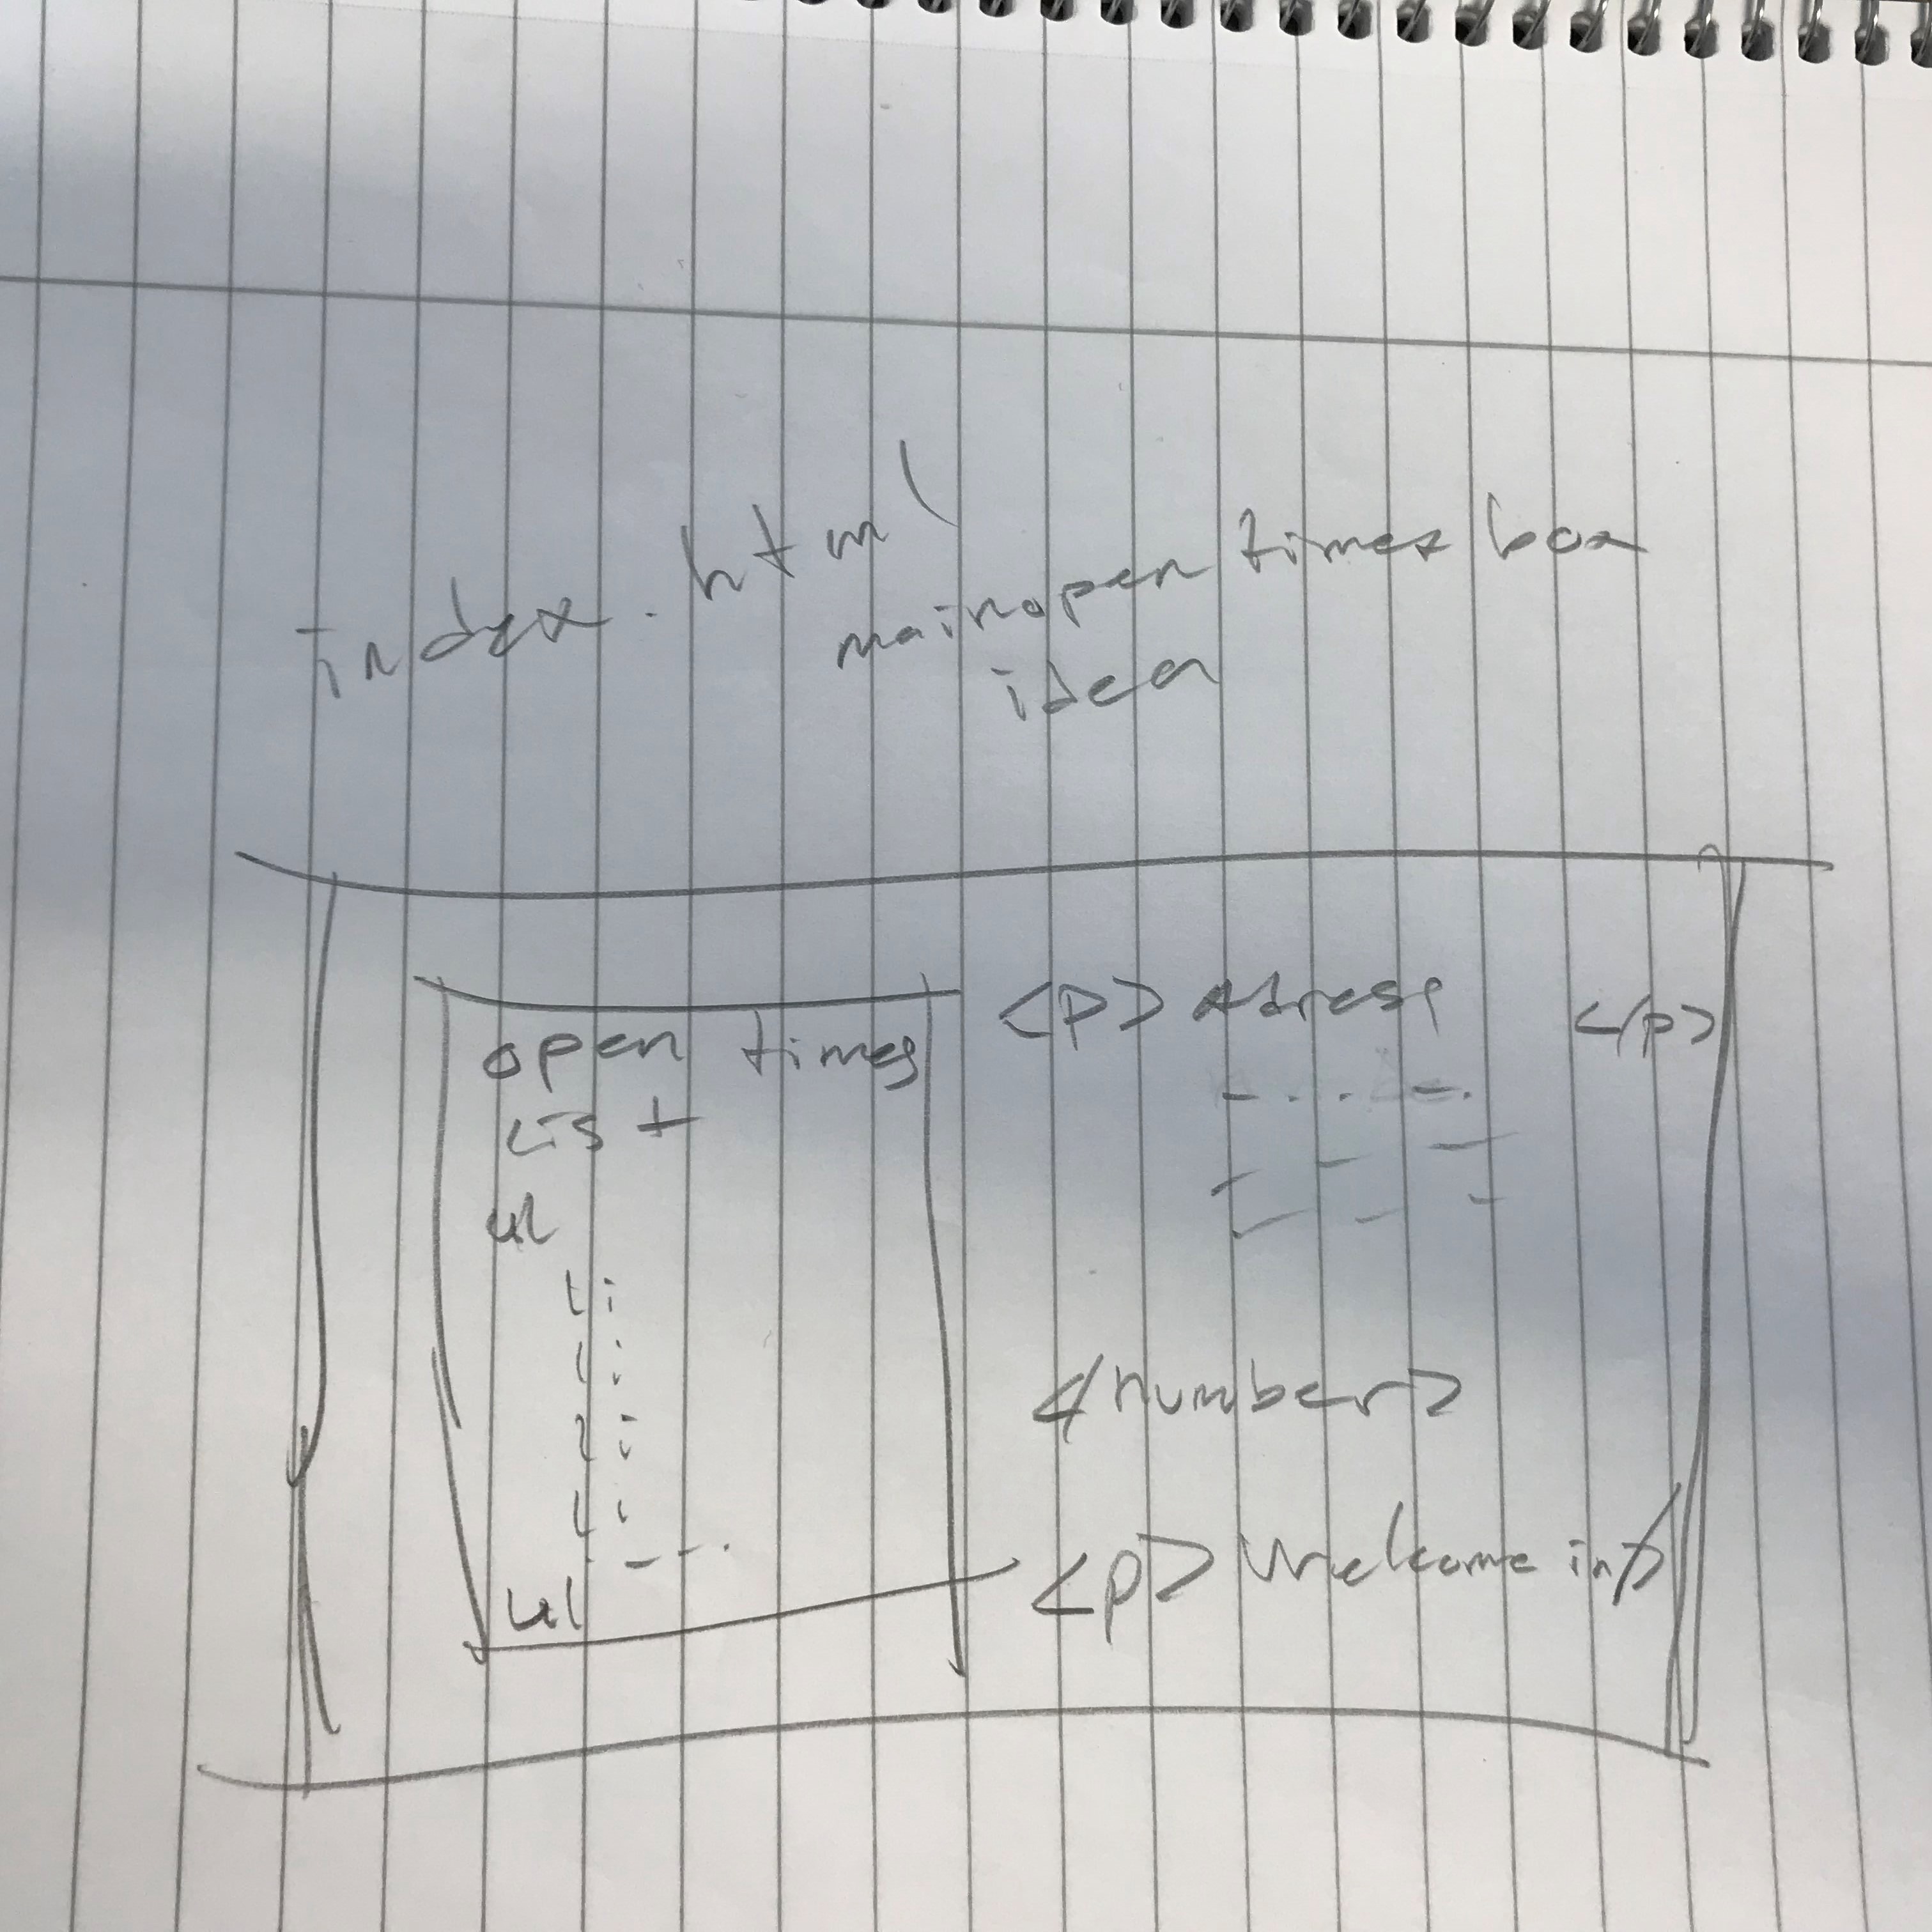 index.html
main open times box
idea
open times
List
ul
li
li
li
li
ul
<p> Adress </p>
</number>
<p> Welcome info